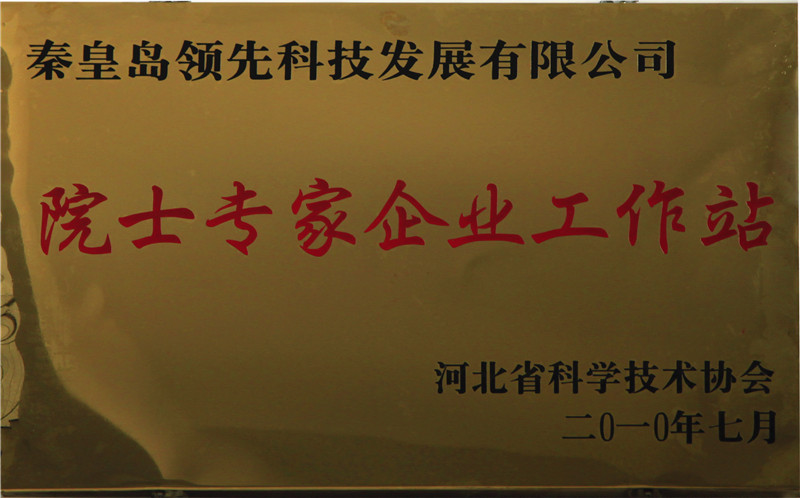 秦皇岛领先科技发展有限公司
院士专家企业工作站
河北省科学技术协会
二0一0年七月